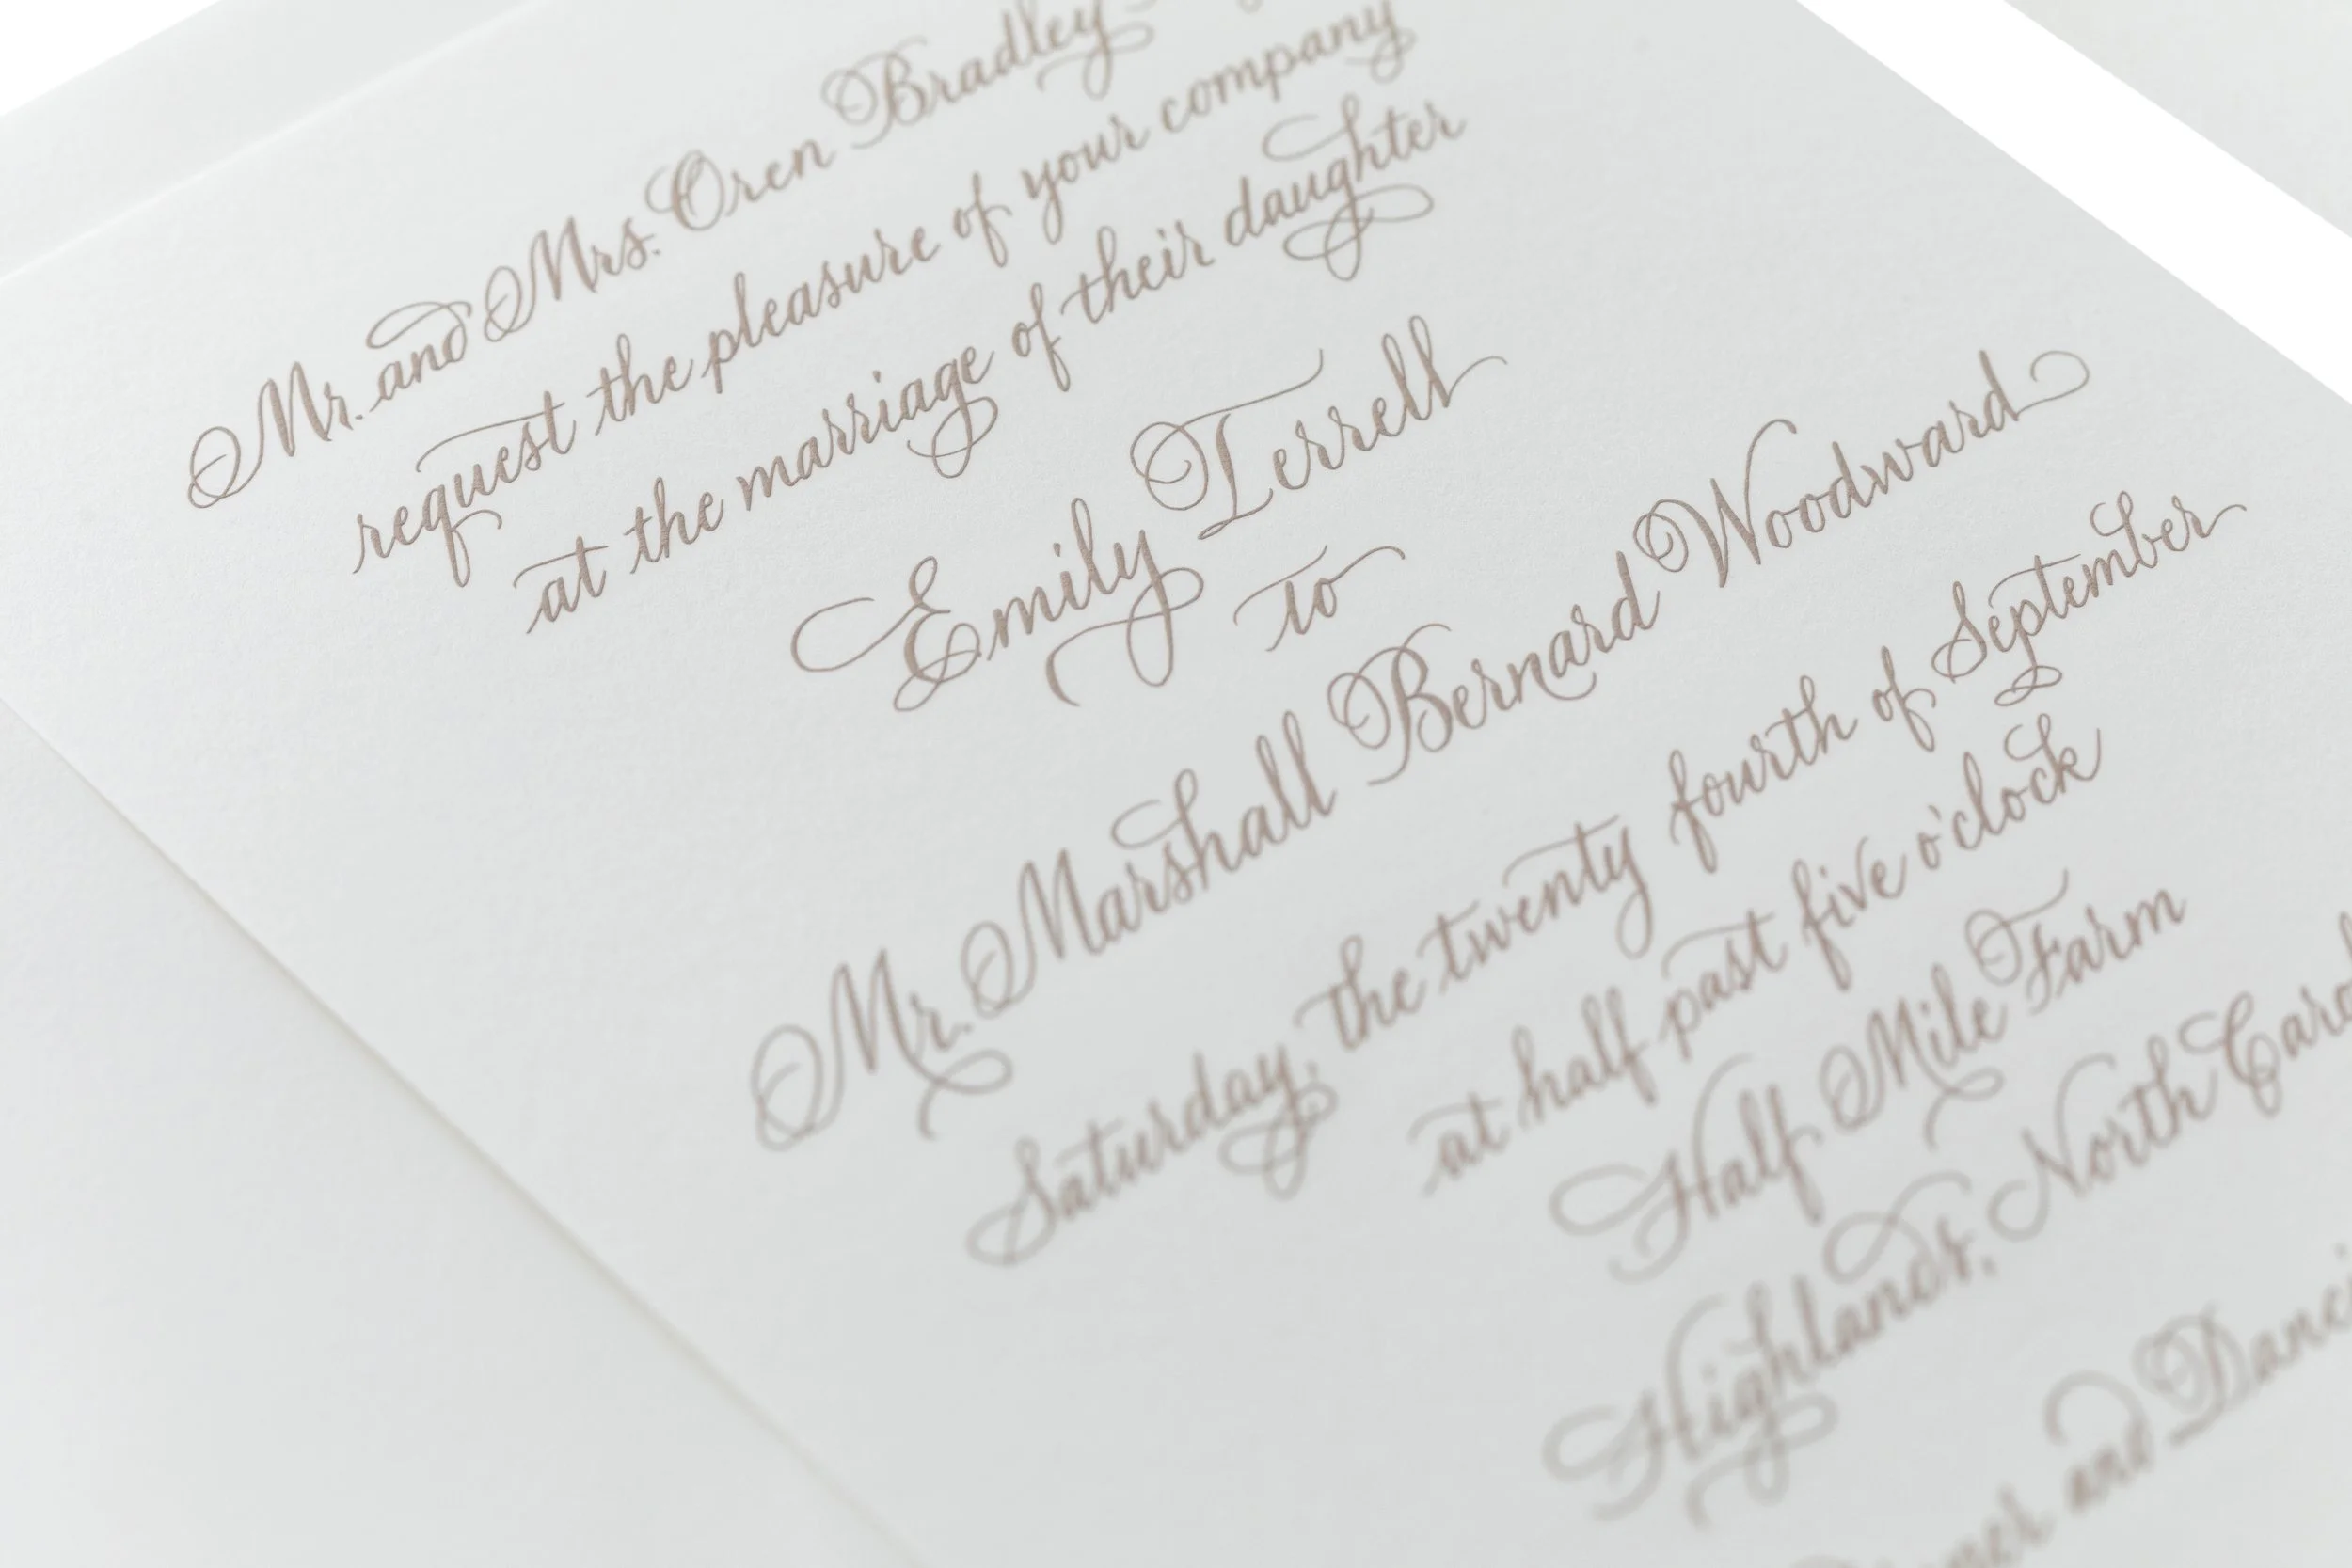 Mr. and Mrs. Oren Bradley
request the pleasure of your company
at the marriage of their daughter
Emily Terrell
to
Mr. Marshall Bernard Woodward
Saturday, the twenty fourth of September
at half past five o'clock
Half Mile Farm
Highlands, North
and